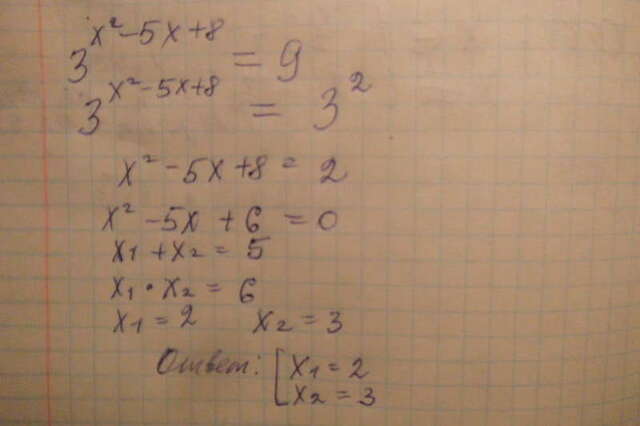 3^{x²-5x+8} = 9
3^{x²-5x+8} = 3²
x²-5x+8 = 2
x²-5x+6=0
x₁+x₂=5
x₁·x₂=6
x₁=2 x₂=3
Ответ: [x₁=2
x₂=3